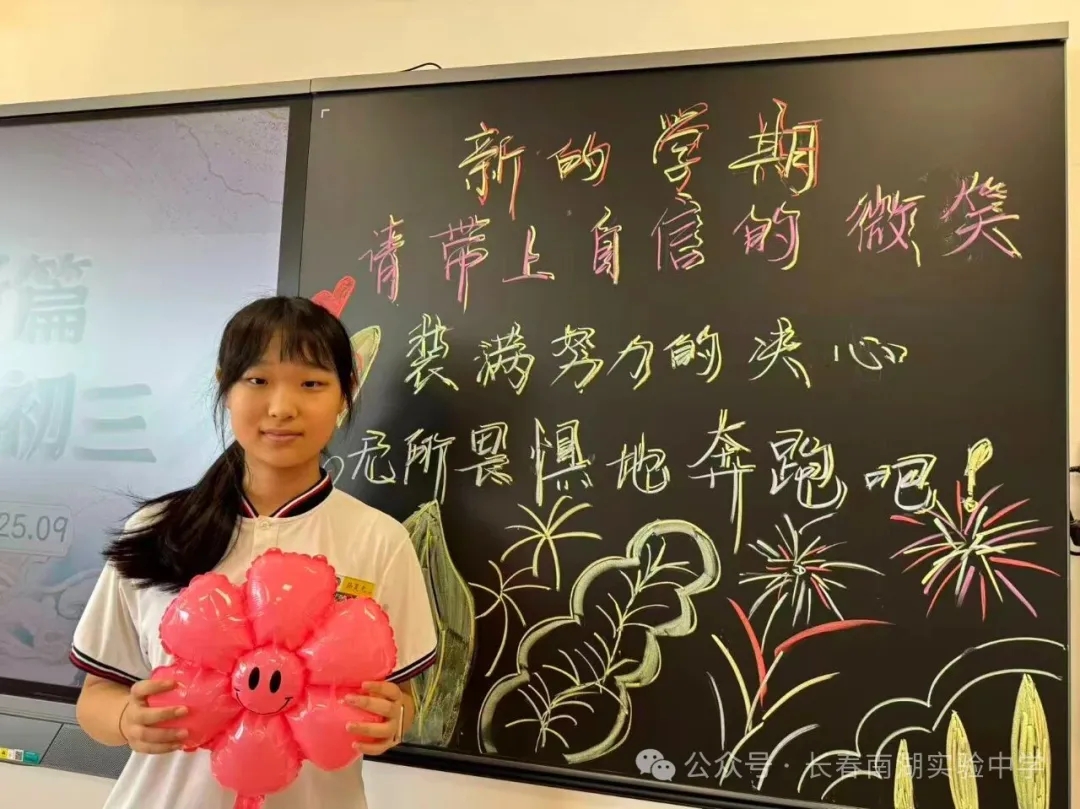 新的学期
请带上自信的微笑
装满努力的决心
无所畏惧地奔跑吧!
篇
初三
25.09
公众号·长春南湖实验中学